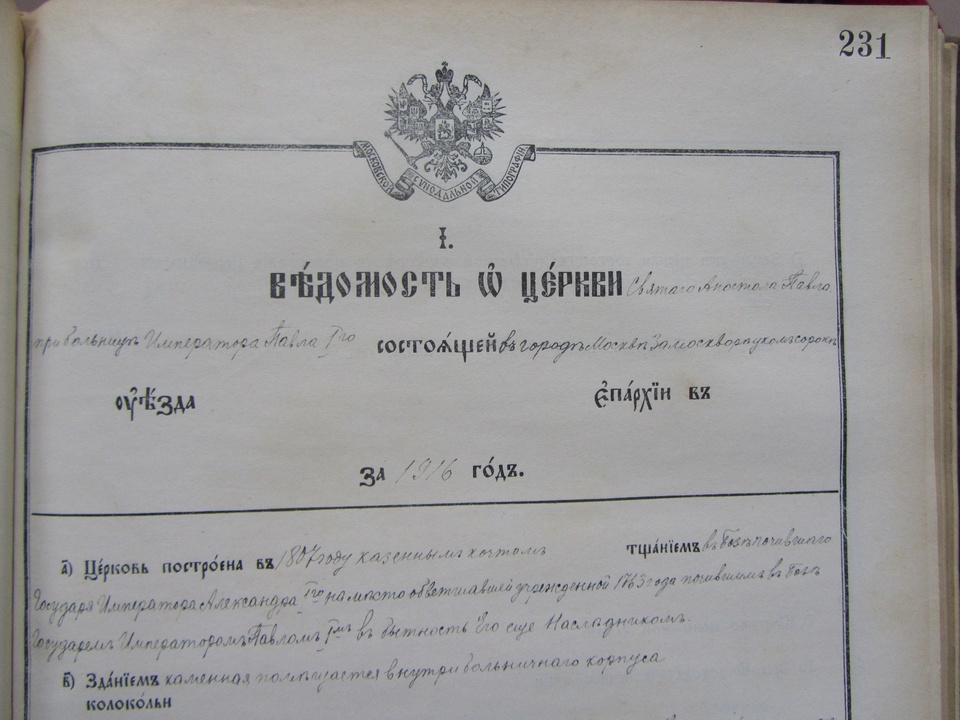 231
МОСКОВСКОЙ СѴНОДАЛЬНОЙ ТИПОГРАФІИ
І.
ВѢ́ДОМОСТЬ Ѽ ЦЕ́РКВИ Святаго Апостола Павла
при больницѣ Императора Павла Iго СОСТОѦ́ЩЕЙ въ городѣ Москвѣ Замоскворѣцкомъ сорокѣ
ОУ҆Ѣ́ЗДА Є҆ПА́РХЇИ ВЪ
ЗА 1916 ГО́ДЪ.
а҃) Це́рковь постро́ена въ 1807 году казеннымъ коштомъ тща́нїемъ въ бозѣ почившаго
Государя Императора Александра Iго на мѣсто обветшавшей учрежденной 1763 года почившимъ въ бозѣ
Государемъ Императоромъ Павломъ Iмъ въ бытность Его еще Наслѣдникомъ.
в҃) Зда́нїемъ каменная помѣщается внутри больничнаго корпуса
колоко́льни